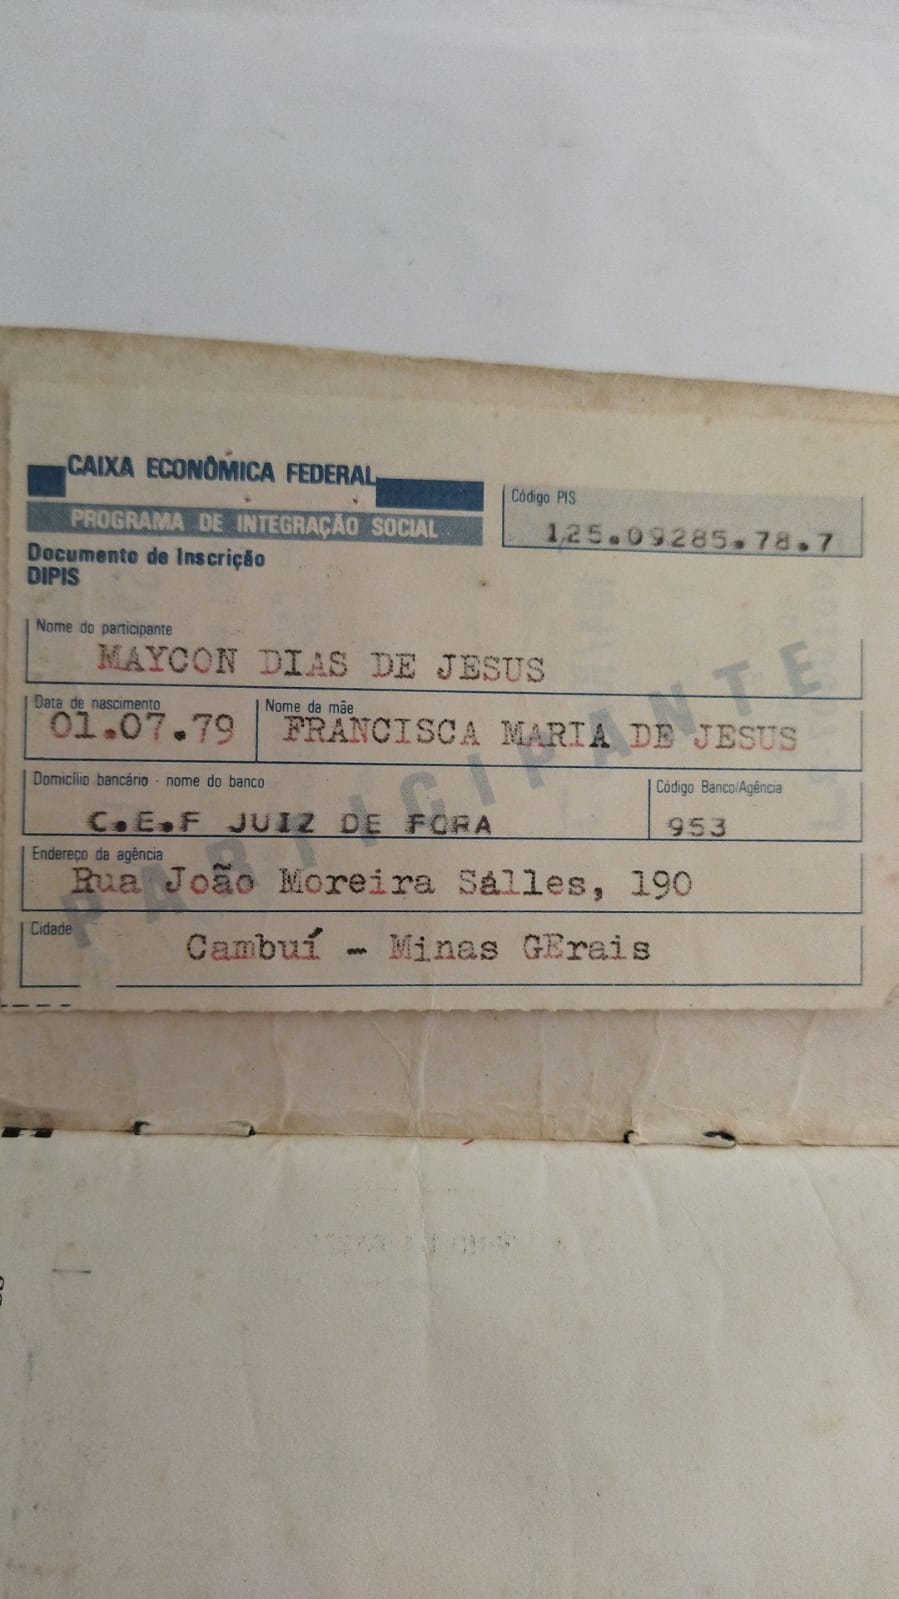 CAIXA ECONÔMICA FEDERAL
PROGRAMA DE INTEGRAÇÃO SOCIAL
Documento de Inscrição
DIPIS
Código PIS
125.09285.78.7
Nome do participante
MAYCON DIAS DE JESUS
Data de nascimento
01.07.79
Nome da mãe
FRANCISCA MARIA DE JESUS
Domicílio bancário - nome do banco
C.E.F JUIZ DE FORA
Código Banco/Agência
953
Endereço da agência
Rua João Moreira Sálles, 190
Cidade
Cambuí - Minas GErais
PARTICIPANTE